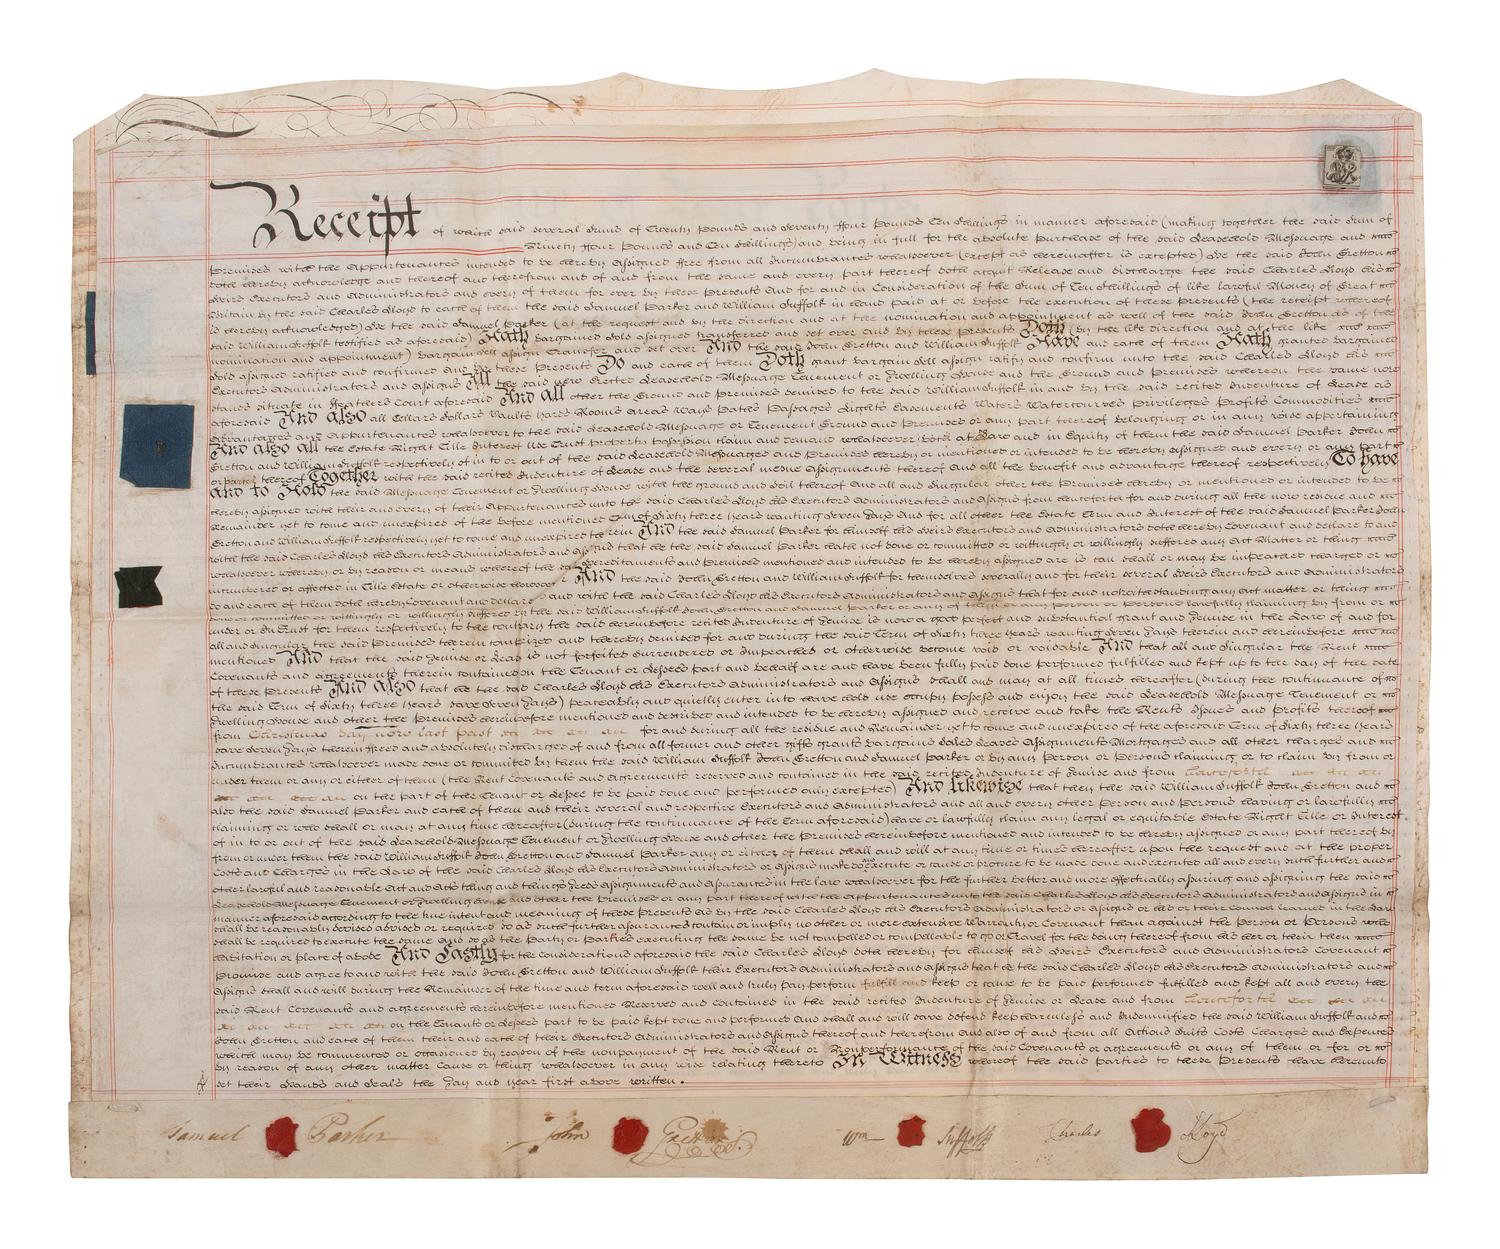 Receipt of which said several Sums of Twenty Pounds and Seventy ffour Pounds Ten Shillings in manner aforesaid (making together the said Sum of
Ninety ffour Pounds and Ten Shillings) and being in full for the absolute Purchase of the said Leasehold Messuage and
Premises with the Appurtenances intended to be hereby assigned ffree from all Incumbrances whatsoever (except as hereinafter is excepted) We the said John Gretton
doth hereby acknowledge and thereof and therefrom and of and from the same and every part thereof doth acquit Release and discharge the said Charles Lloyd his
Heirs Executors and Administrators and every of them for ever by these Presents And for and in Consideration of the Sum of Ten Shillings of like lawful Money of Great
Britain by the said Charles Lloyd to each of them the said Samuel Parker and William Suffolk in hand paid at or before the execution of these Presents (the receipt whereof
is hereby acknowledged) He the said Samuel Parker (at the request and by the direction and at the nomination and appointment as well of the said John Gretton as of the
said William Suffolk testified as aforesaid) Hath bargained sold assigned transferred and set over and by these Presents Doth (by the like direction and at the like
nomination and appointment) bargain sell assign transfer and set over And the said John Gretton and William Suffolk Have and each of them Hath granted bargained
sold assigned ratified and confirmed and by these Presents Do and each of them Doth grant bargain sell assign ratify and confirm unto the said Charles Lloyd his
Executors Administrators and Assigns All the said new Erected Leasehold Messuage Tenement or Dwelling House and the Ground and Premises whereon the same now
stands situate in Heathers Court aforesaid And All other the Ground and Premises demised to the said William Suffolk in and by the said recited Indenture of Lease as
aforesaid And also all Cellars Sollars Vaults Yards Rooms Areas Ways Paths Passages Lights Easements Waters Watercourses Privileges Profits Commodities
Advantages and Appurtenances whatsoever to the said Leasehold Messuage or Tenement Ground and Premises or any part thereof belonging or in any wise appertaining
And also all the Estate Right Title Interest Use Trust Property Possession claim and demand whatsoever both at Law and in Equity of them the said Samuel Parker John
Gretton and William Suffolk respectively of in to or out of the said Leasehold Messuages and Premises hereby or mentioned or intended to be hereby assigned and every or any part
or parcel thereof Together with the said recited Indenture of Lease and the several mesne Assignments thereof and all the benefit and advantage thereof respectively To have
and to Hold the said Messuage Tenement or Dwelling House with the ground and Soil thereof and all and singular other the Premises hereby or mentioned or intended to be
hereby assigned with their and every of their Appurtenances unto the said Charles Lloyd his Executors Administrators and Assigns from henceforth for and during all the now residue and
remainder yet to come and unexpired of the before mentioned Term of Sixty three Years wanting Seven Days And for all other the Estate Term and Interest of the said Samuel Parker John
Gretton and William Suffolk respectively yet to come and unexpired therein And the said Samuel Parker for himself his Heirs Executors and Administrators doth hereby Covenant and declare to and
with the said Charles Lloyd his Executors Administrators and Assigns that he the said Samuel Parker hath not done or committed or wittingly or willingly suffered any Act Matter or thing
whatsoever whereby or by reason or means whereof the said Hereditaments and Premises mentioned and intended to be hereby assigned are is can shall or may be impeached charged or
incumbered or affected in Title Estate or otherwise howsoever And the said John Gretton and William Suffolk for themselves severally and for their several Heirs Executors and Administrators
do and each of them doth hereby Covenant and declare to and with the said Charles Lloyd his Executors Administrators and Assigns that for and notwithstanding any Act matter or thing
done or committed or wittingly or willingly suffered by the said William Suffolk John Gretton and Samuel Parker or any of them or any person or Persons lawfully claiming by from or
under or in Trust for them respectively to the contrary the said hereinbefore recited Indenture of Demise is now a good perfect and substantial grant and Demise in the Law of and for
all and singular the said Premises therein comprized and thereby demised for and during the said Term of Sixty three Years wanting Seven Days therein and hereinbefore
mentioned And that the said Demise or Lease is not forfeited surrendered or Impeached or otherwise become void or voidable And that all and singular the Rent
Covenants and agreements therein contained on the Tenant or Lessees part and behalf are and have been fully paid done performed fulfilled and kept up to the day of the date
of these Presents And also that he the said Charles Lloyd his Executors Administrators and Assigns shall and may at all times hereafter (during the continuance of
the said Term of Sixty three Years save Seven Days) peaceably and quietly enter into have hold use occupy possess and enjoy the said Leasehold Messuage Tenement or
Dwelling House and other the Premises hereinbefore mentioned and described and intended to be hereby assigned and receive and take the Rents Issues and profits thereof
from Christmas Day now last past for and during all the residue and Remainder yet to come and unexpired of the aforesaid Term of Sixty three Years
save Seven Days therein ffreed and absolutely discharged of and from all former and other gifts grants bargains Sales Leases Assignments Mortgages and all other charges and
Incumbrances whatsoever made done or committed by them the said William Suffolk John Gretton and Samuel Parker or by any Person or Persons claiming or to claim by from or
under them or any or either of them (the Rent Covenants and Agreements reserved and contained in the said recited Indenture of Demise and from henceforth
on the part of the Tenant or Lessee to be paid done and performed only excepted) And likewise that they the said William Suffolk John Gretton and
also the said Samuel Parker and each of them and their several and respective Executors and Administrators and all and every other Person and Persons having or lawfully
claiming or who shall or may at any time hereafter (during the continuance of the Term aforesaid) have or lawfully claim any legal or equitable Estate Right Title or Interest
of in to or out of the said Leasehold Messuage Tenement or Dwelling House and other the Premises hereinbefore mentioned and intended to be hereby assigned or any part thereof by
from or under them the said William Suffolk John Gretton and Samuel Parker any or either of them shall and will at any time or times hereafter upon the request and at the proper
Costs and Charges in the Law of the said Charles Lloyd his Executors Administrators or Assigns make do and execute or cause or procure to be made done and executed all and every such further and
other lawful and reasonable Act and Acts thing and things Deeds Assignments and Assurances in the law whatsoever for the further better and more effectually assuring and assigning the said
Leasehold Messuage Tenement or Dwelling House and other the Premises or any part thereof with the Appurtenances unto the said Charles Lloyd his Executors Administrators and Assigns in
manner aforesaid according to the true intent and meaning of these Presents As by the said Charles Lloyd his Executors Administrators or Assigns or his or their Counsel learned in the Law
shall be reasonably devised advised or required so as such further assurances contain or imply no other or more extensive Warranty or Covenant than against the Person or Persons who
shall be required to execute the same and so as the Party or Parties executing the same be not compelled or compellable to go or Travel for the doing thereof from his her or their then
habitation or place of abode And Lastly for the Considerations aforesaid the said Charles Lloyd doth hereby for himself his Heirs Executors and Administrators Covenant
Promise and agree to and with the said John Gretton and William Suffolk their Executors Administrators and Assigns that he the said Charles Lloyd his Executors Administrators and
Assigns shall and will during the Remainder of the time and term aforesaid well and truly pay perform fulfill and keep or cause to be paid performed fulfilled and kept all and every the
said Rent Covenants and agreements hereinbefore mentioned Reserved and contained in the said recited Indenture of Demise or Lease and from henceforth
on the Tenants or Lessees part to be paid kept done and performed And shall and will save defend keep harmless and Indemnified the said William Suffolk and
John Gretton and each of them their and each of their Executors Administrators and Assigns thereof and therefrom and also of and from all Actions Suits Costs Charges and Expences
which may be commenced or occasioned by reason of the nonpayment of the said Rent or Nonperformance of the said Covenants or agreements or any of them or for or
by reason of any other matter Cause or thing whatsoever in any wise relating thereto In Witness whereof the said parties to these Presents have hereunto
set their Hands and Seals the Day and Year first above written.
Samuel Parker John Gretton Wm Suffolk Charles Lloyd